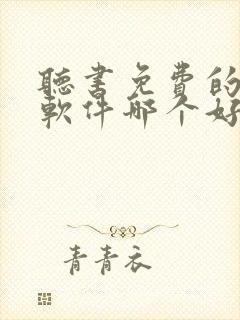 聽書免費的
軟件哪個好
青青衣